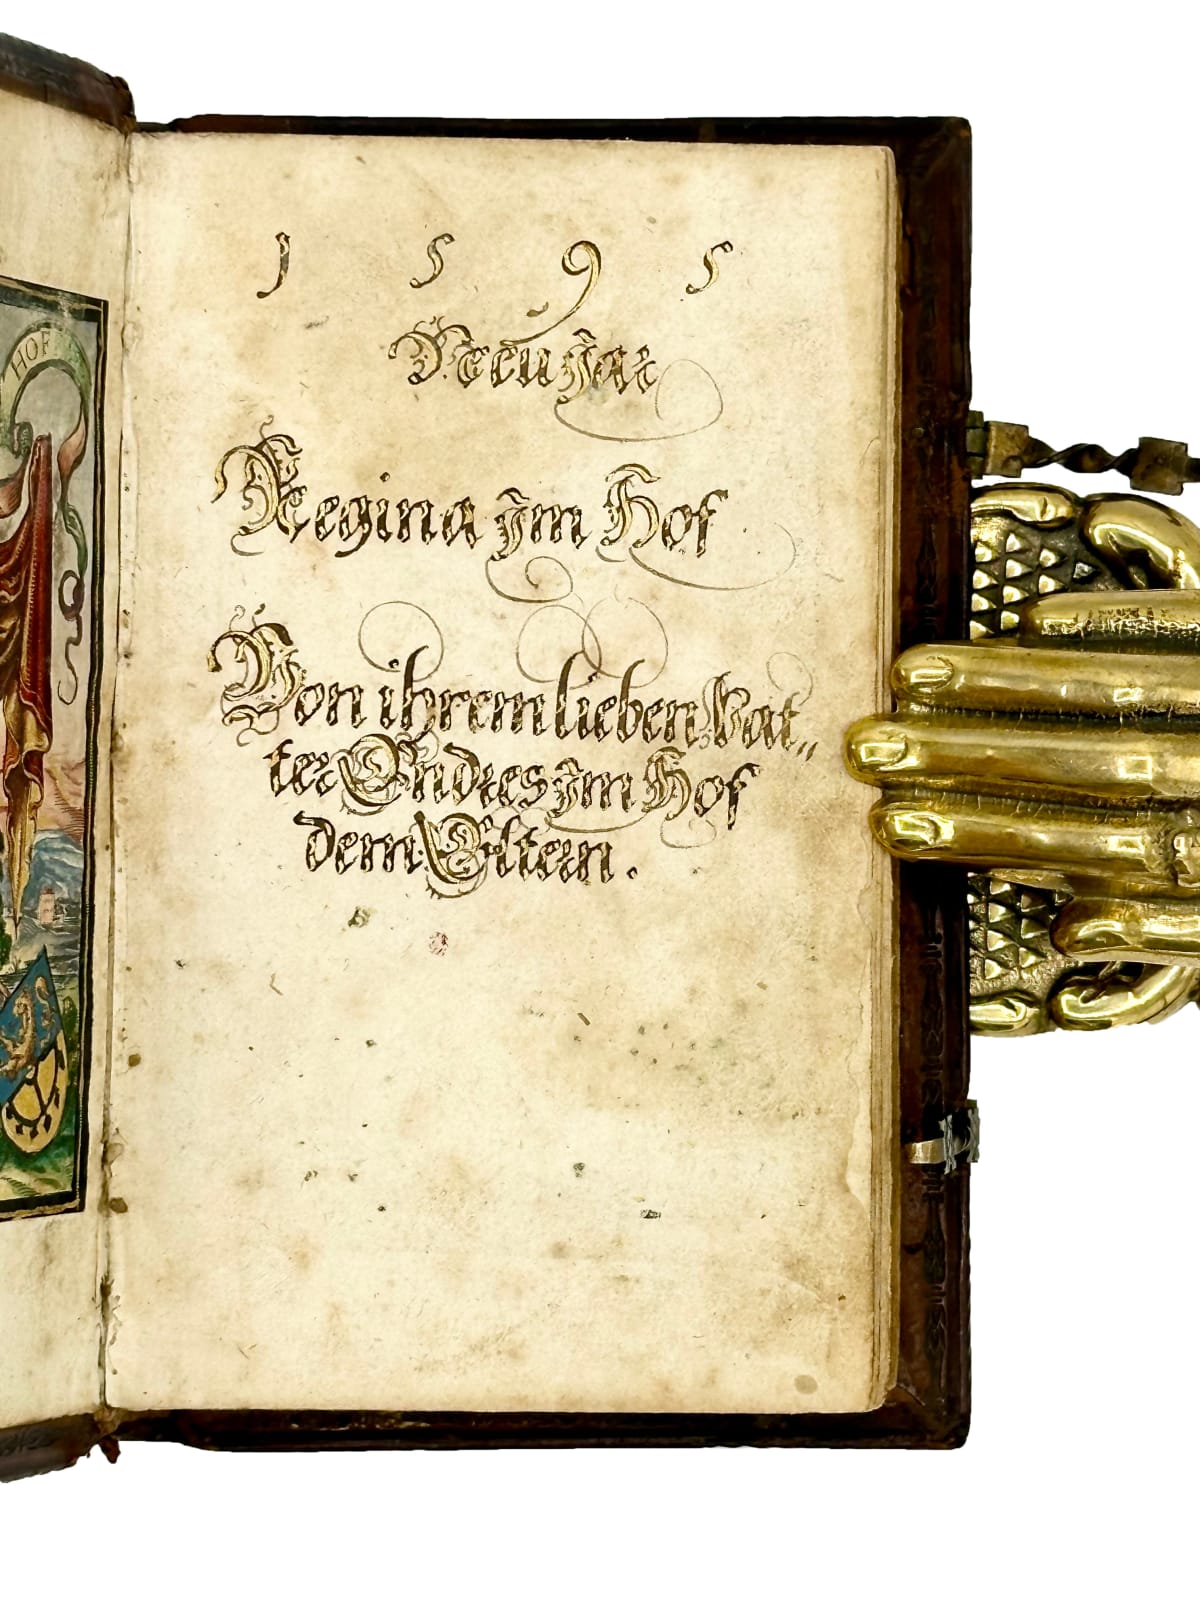 HOF
1595
Neeu Jar
Regina Jm Hof
Von ihrem lieben Vat„
ter Endres Jm Hof
dem Eltern.